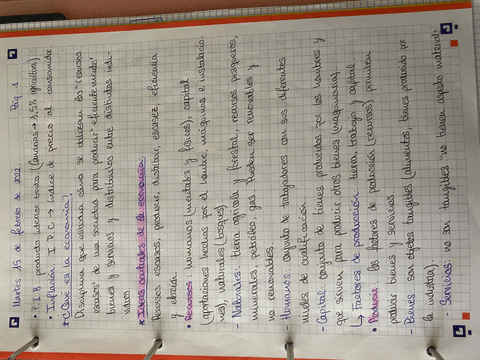 Martes 15 de febrero de 2022 Pág 1
• P.I.B producto interior bruto (Canarias → 1,5% agricultura)
• Inflación I.P.C → índice de precio al consumidor
* ¿Qué es la economía?
Disciplina que estudia cómo se utilizan los "recursos
escasos" de una sociedad para producir "eficientemente"
bienes y servicios y distribuirlos entre distintos indi-
viduos
* Ideas centrales de la economía:
Recursos escasos, producir, distribuir, escasez, eficiencia
y elección.
• Recursos: humanos (mentales y físicos), capital
(aportaciones hechas por el hombre, máquinas e instalacio-
nes), naturales (bosques).
- Naturales: tierra agrícola y forestal, recursos pesqueros,
minerales, petróleo, gas. Pueden ser renovables y
no renovables.
- Humanos: conjunto de trabajadores con sus diferentes
niveles de cualificación.
- Capital: conjunto de bienes producidos por los hombres y
que sirven para producir otros bienes (maquinaria)
↳ Factores de producción: tierra, trabajo y capital
• Producir: los factores de producción (recursos) permiten
producir bienes y servicios
- Bienes: son objetos tangibles (alimentos, bienes producido por
la industria).
- Servicios: no son tangibles "no tienen aspecto material"